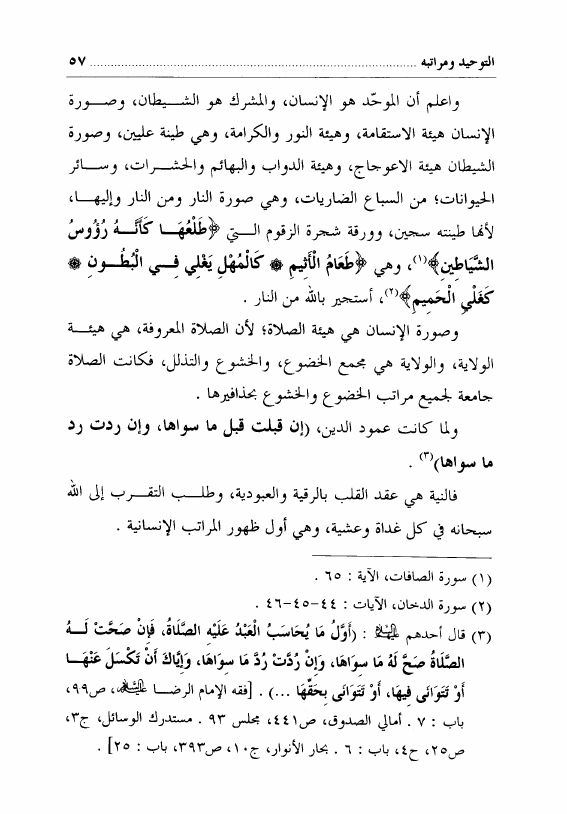 التوحيد ومراتبه ........................................................................ ٥٧
واعلم أن الموحّد هو الإنسان، والمشرك هو الشـيطان، وصـورة
الإنسان هيئة الاستقامة، وهيئة النور والكرامة، وهي طينة عليين، وصورة
الشيطان هيئة الاعوجاج، وهيئة الدواب والبهائم والحشـرات، وسـائر
الحيوانات؛ من السباع الضاريات، وهي صورة النار ومن النار وإليهـا،
لأنها طينته سجين، وورقة شجرة الزقوم الـتي ﴿طَلْعُهَـا كَأَنَّـهُ رُؤُوسُ
الشَّيَاطِينِ﴾(١)، وهي ﴿طَعَامُ الْأَثِيمِ ۞ كَالْمُهْلِ يَغْلِي فِـي الْبُطُـونِ ۞
كَغَلْيِ الْحَمِيمِ﴾(٢)، أستجير بالله من النار .
وصورة الإنسان هي هيئة الصلاة؛ لأن الصلاة المعروفة، هي هيئـة
الولاية، والولاية هي مجمع الخضوع، والخشوع والتذلل، فكانت الصلاة
جامعة لجميع مراتب الخضوع والخشوع بحذافيرها .
ولما كانت عمود الدين، (إن قبلت قبل ما سواها، وإن ردت رد
ما سواها)(٣) .
فالنية هي عقد القلب بالرقية والعبودية، وطلـب التقـرب إلى الله
سبحانه في كل غداة وعشية، وهي أول ظهور المراتب الإنسانية .
(١) سورة الصافات، الآية : ٦٥ .
(٢) سورة الدخان، الآيات : ٤٤-٤٥-٤٦ .
(٣) قال أحدهم عليه السلام : (أَوَّلُ مَا يُحَاسَبُ الْعَبْدُ عَلَيْهِ الصَّلَاةُ، فَإِنْ صَحَّتْ لَـهُ
الصَّلَاةُ صَحَّ لَهُ مَا سِوَاهَا، وَإِنْ رُدَّتْ رُدَّ مَا سِوَاهَا، وَإِيَّاكَ أَنْ تَكْسَلَ عَنْهَـا
أَوْ تَتَوَانَى فِيهَا، أَوْ تَتَوَانَى بِحَقِّهَا ...) . [فقه الإمام الرضـا عليه السلام، ص٩٩،
باب : ٧ . أمالي الصدوق، ص٤٤١، مجلس ٩٣ . مستدرك الوسائل، ج٣،
ص٢٥، ح٤، باب : ٦ . بحار الأنوار، ج١٠، ص٣٩٣، باب : ٢٥] .